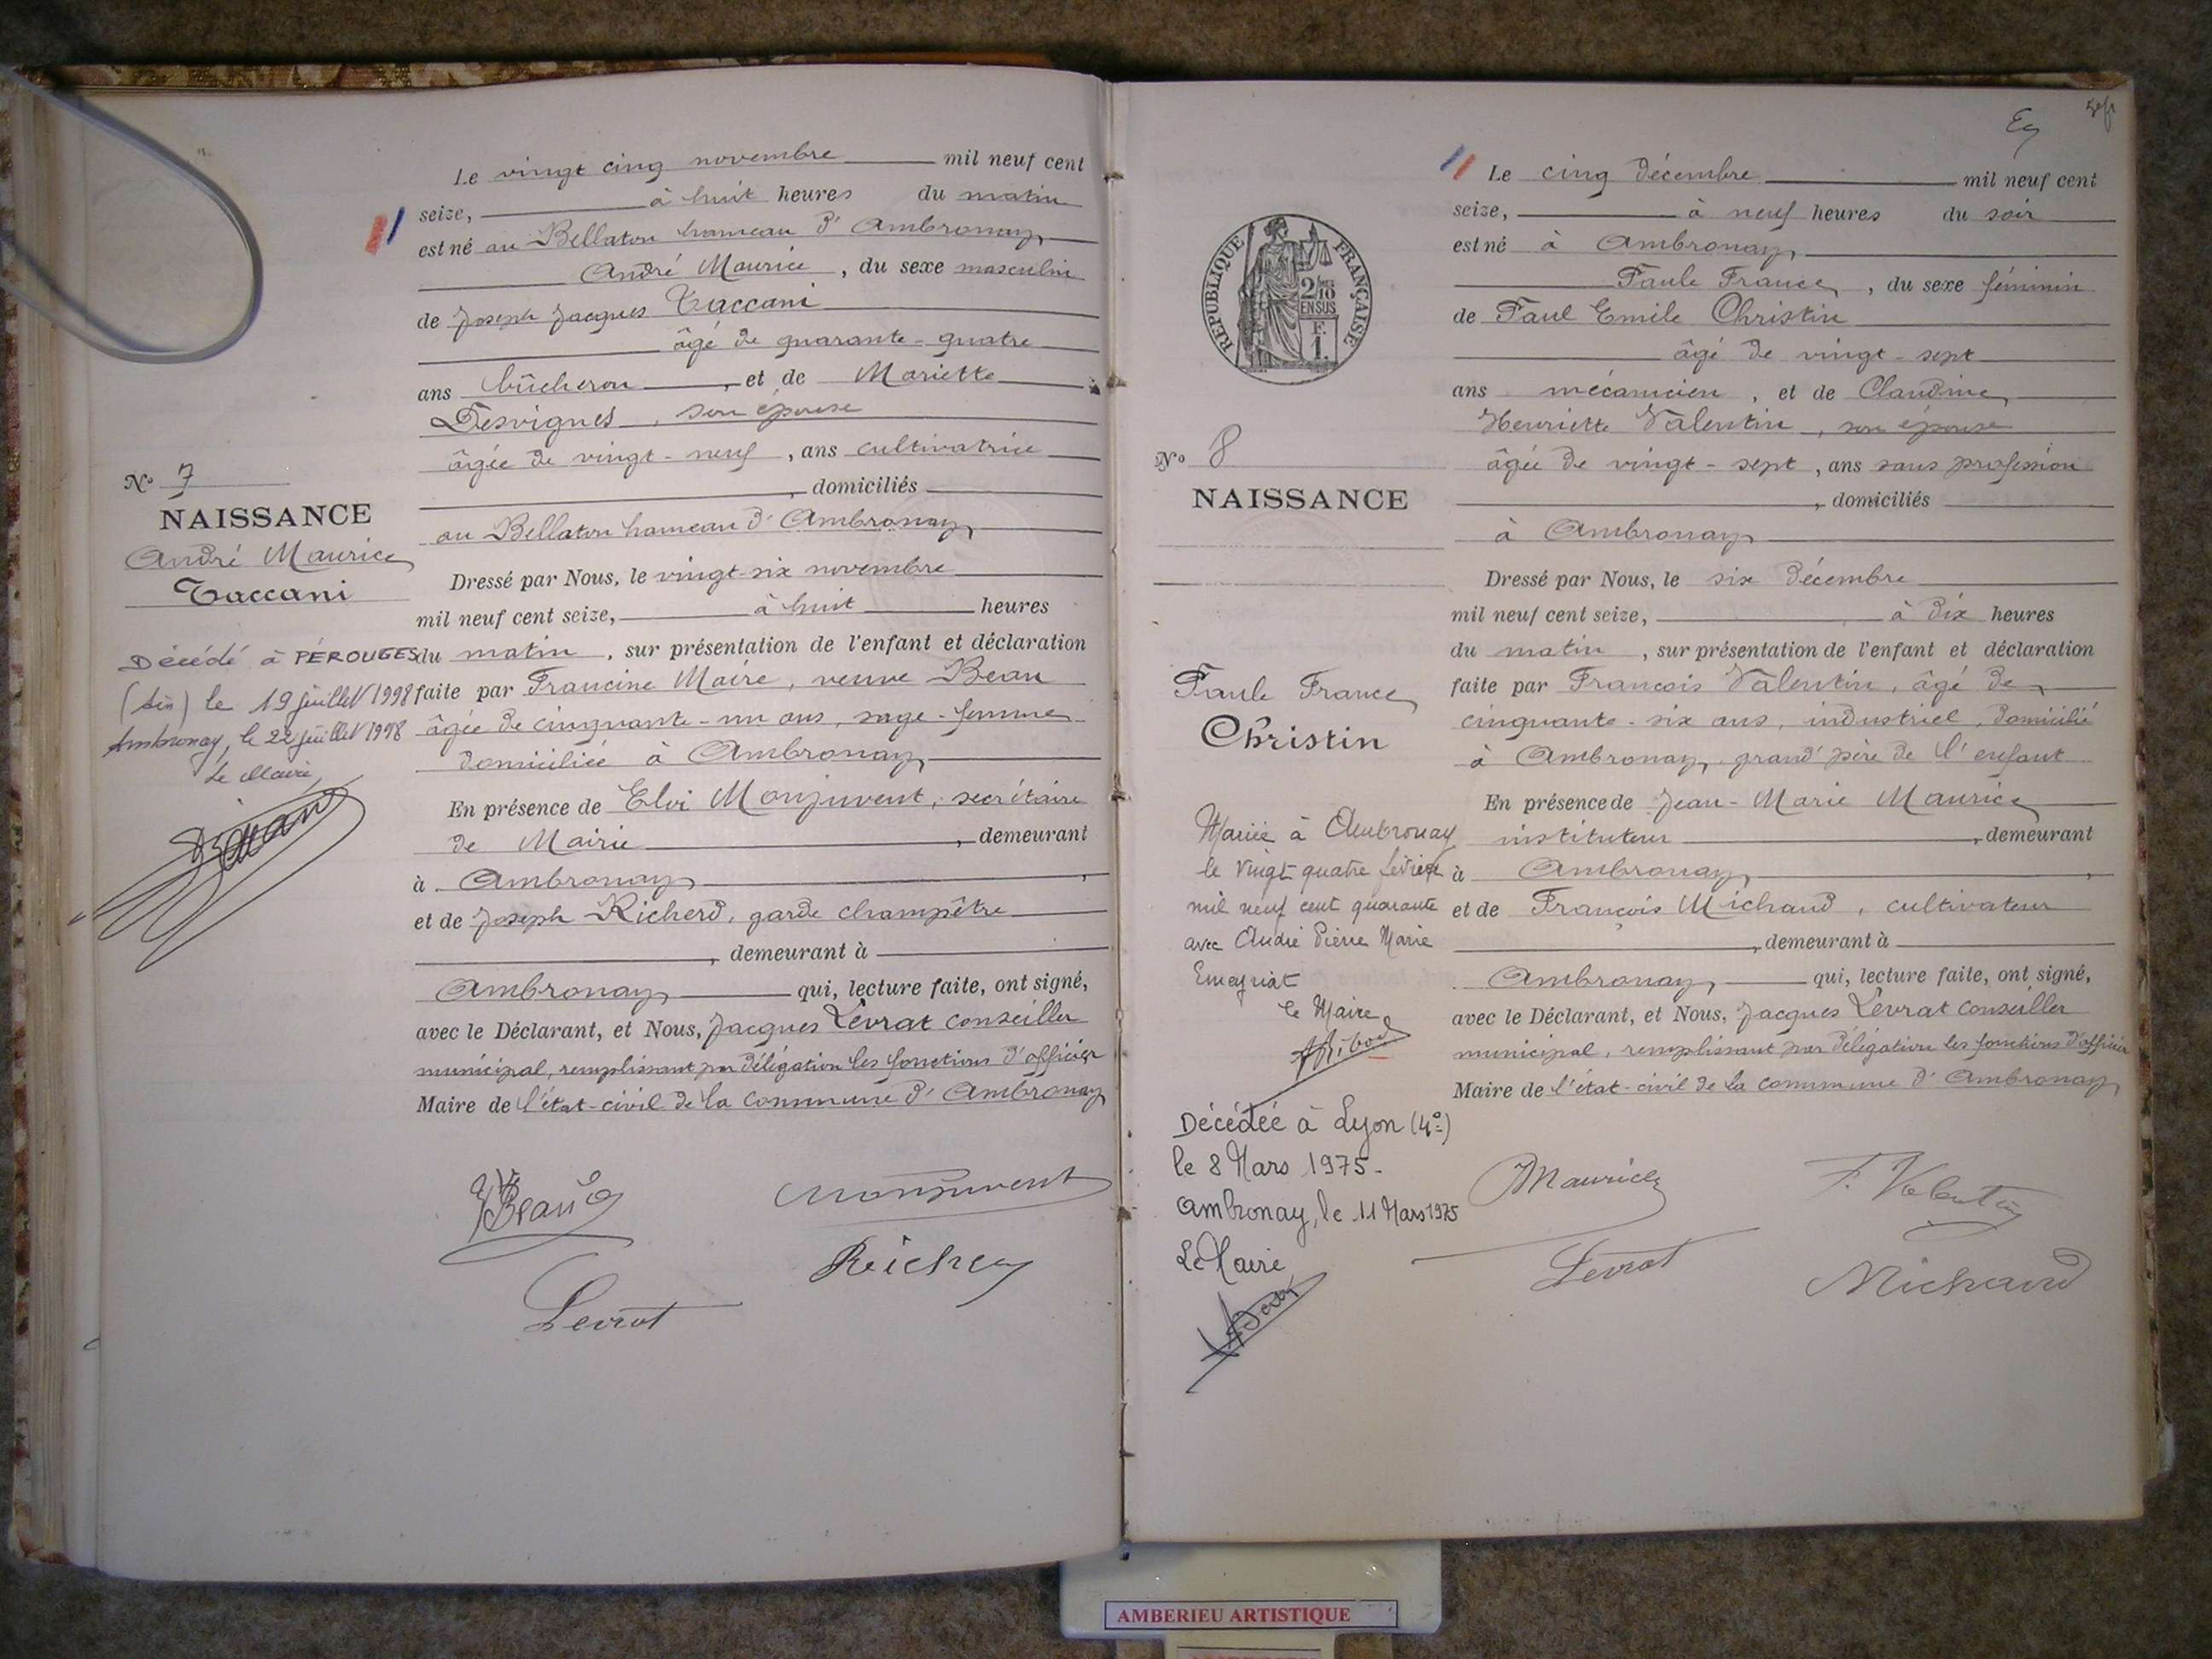 Le vingt cinq novembre mil neuf cent
seize, à huit heures du matin
est né au Bellaton hameau d'Ambronay
André Maurice, du sexe masculin
de Joseph Jacques Taccani
âgé de quarante-quatre
ans bûcheron, et de Mariette
Desvignes, son épouse
âgée de vingt-neuf, ans cultivatrice
, domiciliés
au Bellaton hameau d'Ambronay
Dressé par Nous, le vingt-six novembre
mil neuf cent seize, à huit heures
du matin, sur présentation de l'enfant et déclaration
faite par Francine Maire, veuve Bean
âgée de cinquante-un ans, sage-femme
domiciliée à Ambronay
En présence de Elvi Monjuvent, secrétaire
de Mairie, demeurant
à Ambronay,
et de Joseph Richerd, garde champêtre
, demeurant à
Ambronay qui, lecture faite, ont signé,
avec le Déclarant, et Nous, Jacques Levrat conseiller
municipal, remplissant par délégation les fonctions d'officier
Maire de l'état-civil de la commune d'Ambronay
Vve Bean
Monjuvent
Richerd
Levrat
No 7
NAISSANCE
André Maurice
Taccani
Décédé à PÉROUGES
(Ain) le 19 juillet 1998
Ambronay, le 22 juillet 1998
Le Maire,
5e f
REPUBLIQUE FRANÇAISE
2/10
EN SUS
F.
1.
Le cinq décembre mil neuf cent
seize, à neuf heures du soir
est né à Ambronay,
Paule France, du sexe féminin
de Paul Emile Christin
âgé de vingt-sept
ans mécanicien, et de Claudine
Henriette Valentin, son épouse
âgée de vingt-sept, ans sans profession
, domiciliés
à Ambronay
Dressé par Nous, le six décembre
mil neuf cent seize, à dix heures
du matin, sur présentation de l'enfant et déclaration
faite par François Valentin, âgé de
cinquante-six ans, industriel, domicilié
à Ambronay, grand'père de l'enfant
En présence de Jean-Marie Maurice
instituteur, demeurant
à Ambronay,
et de François Michaud, cultivateur
, demeurant à
Ambronay, qui, lecture faite, ont signé,
avec le Déclarant, et Nous, Jacques Levrat conseiller
municipal, remplissant par délégation les fonctions d'officier
Maire de l'état-civil de la commune d'Ambronay
JMaurice
F. Valentin
Levrat
Michaud
No 8
NAISSANCE
Paule France
Christin
Mariée à Ambronay
le vingt quatre février
mil neuf cent quarante
avec André Pierre Marie
Emeyriat
le Maire
Décédée à Lyon (4e)
le 8 Mars 1975.
Ambronay, le 11 Mars 1975
Le Maire
AMBERIEU ARTISTIQUE